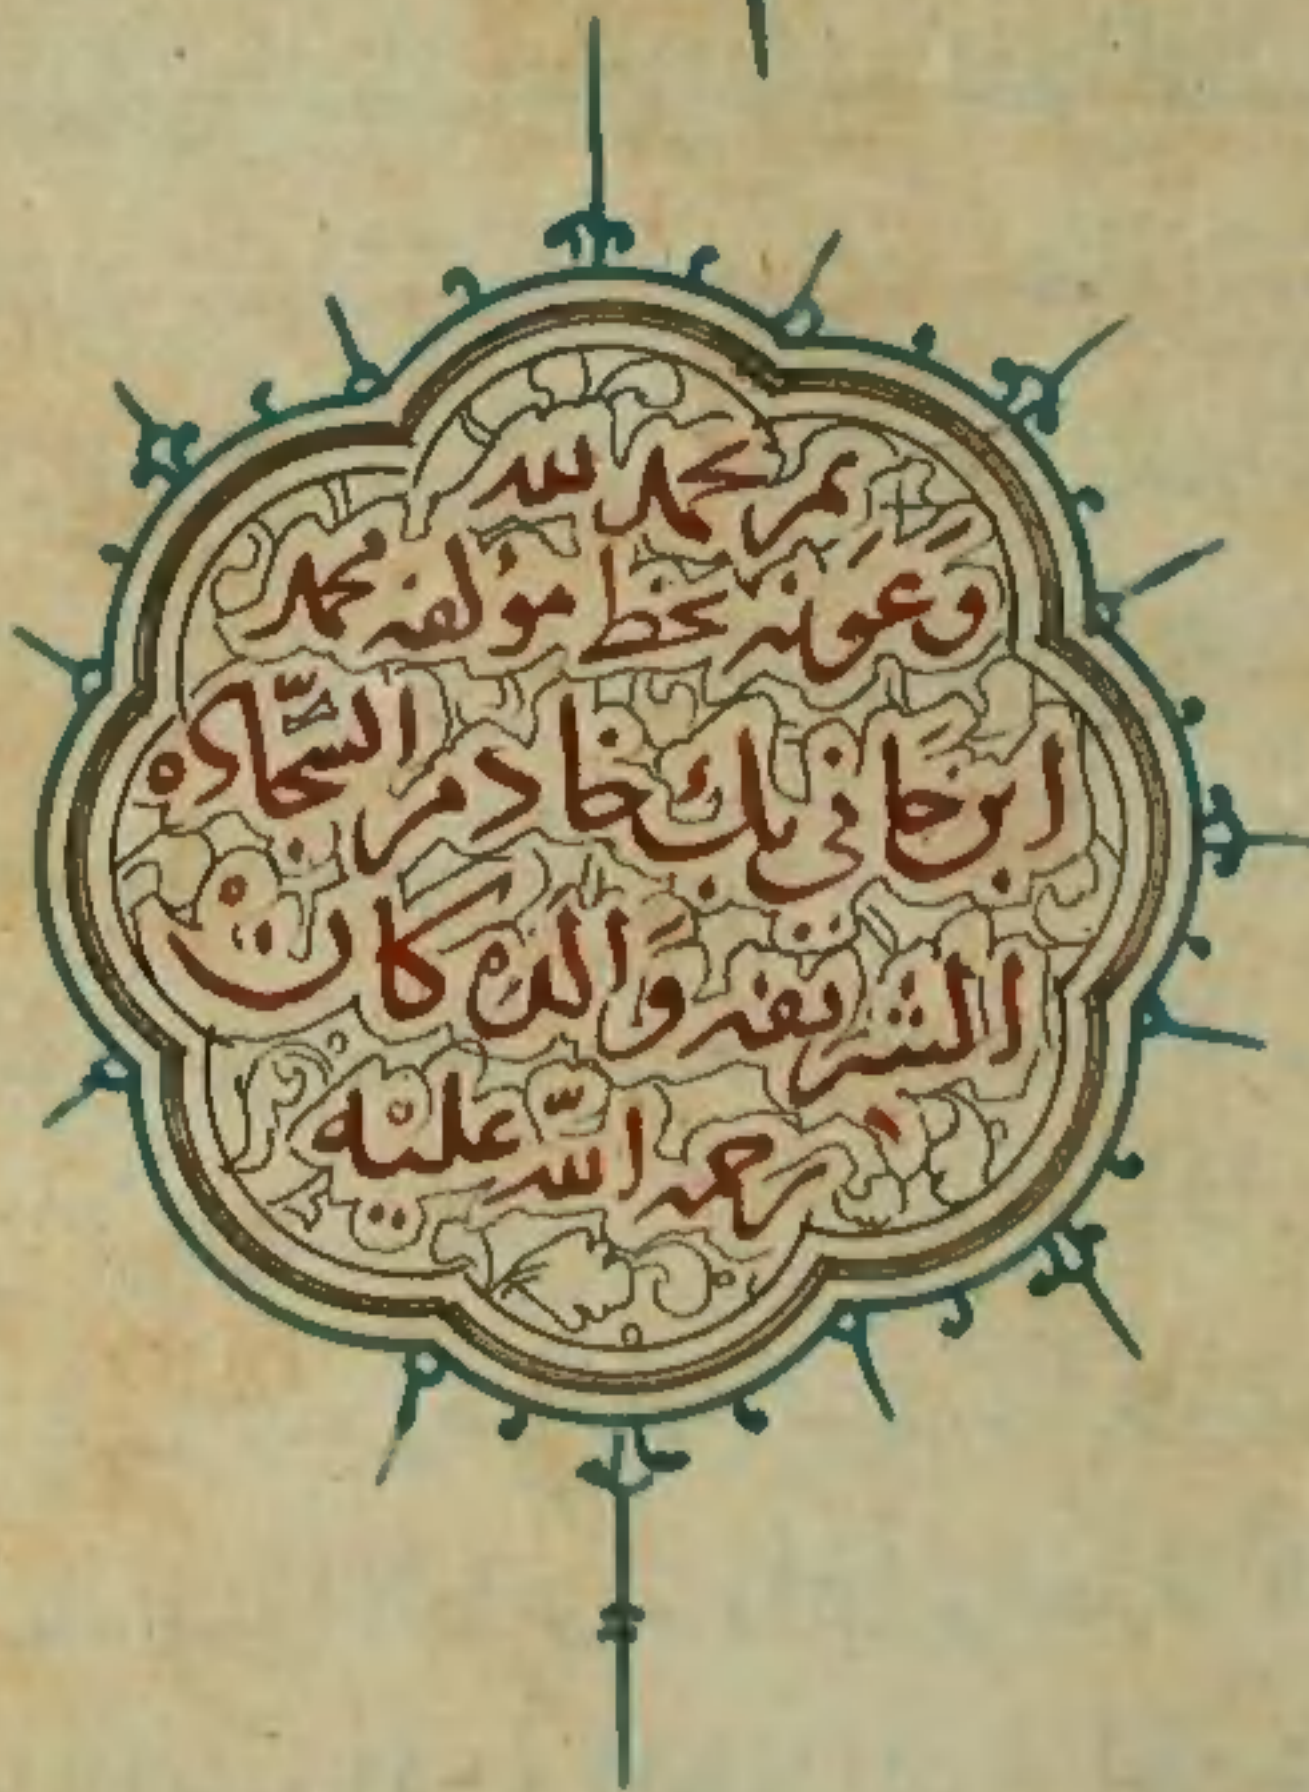 تم بحمد لله
وَعَونه بخط مؤلفه محمد
ابن خَاني بك خادم السّجادة
الشريفه وَالده كان
رحمه اللّه عليه